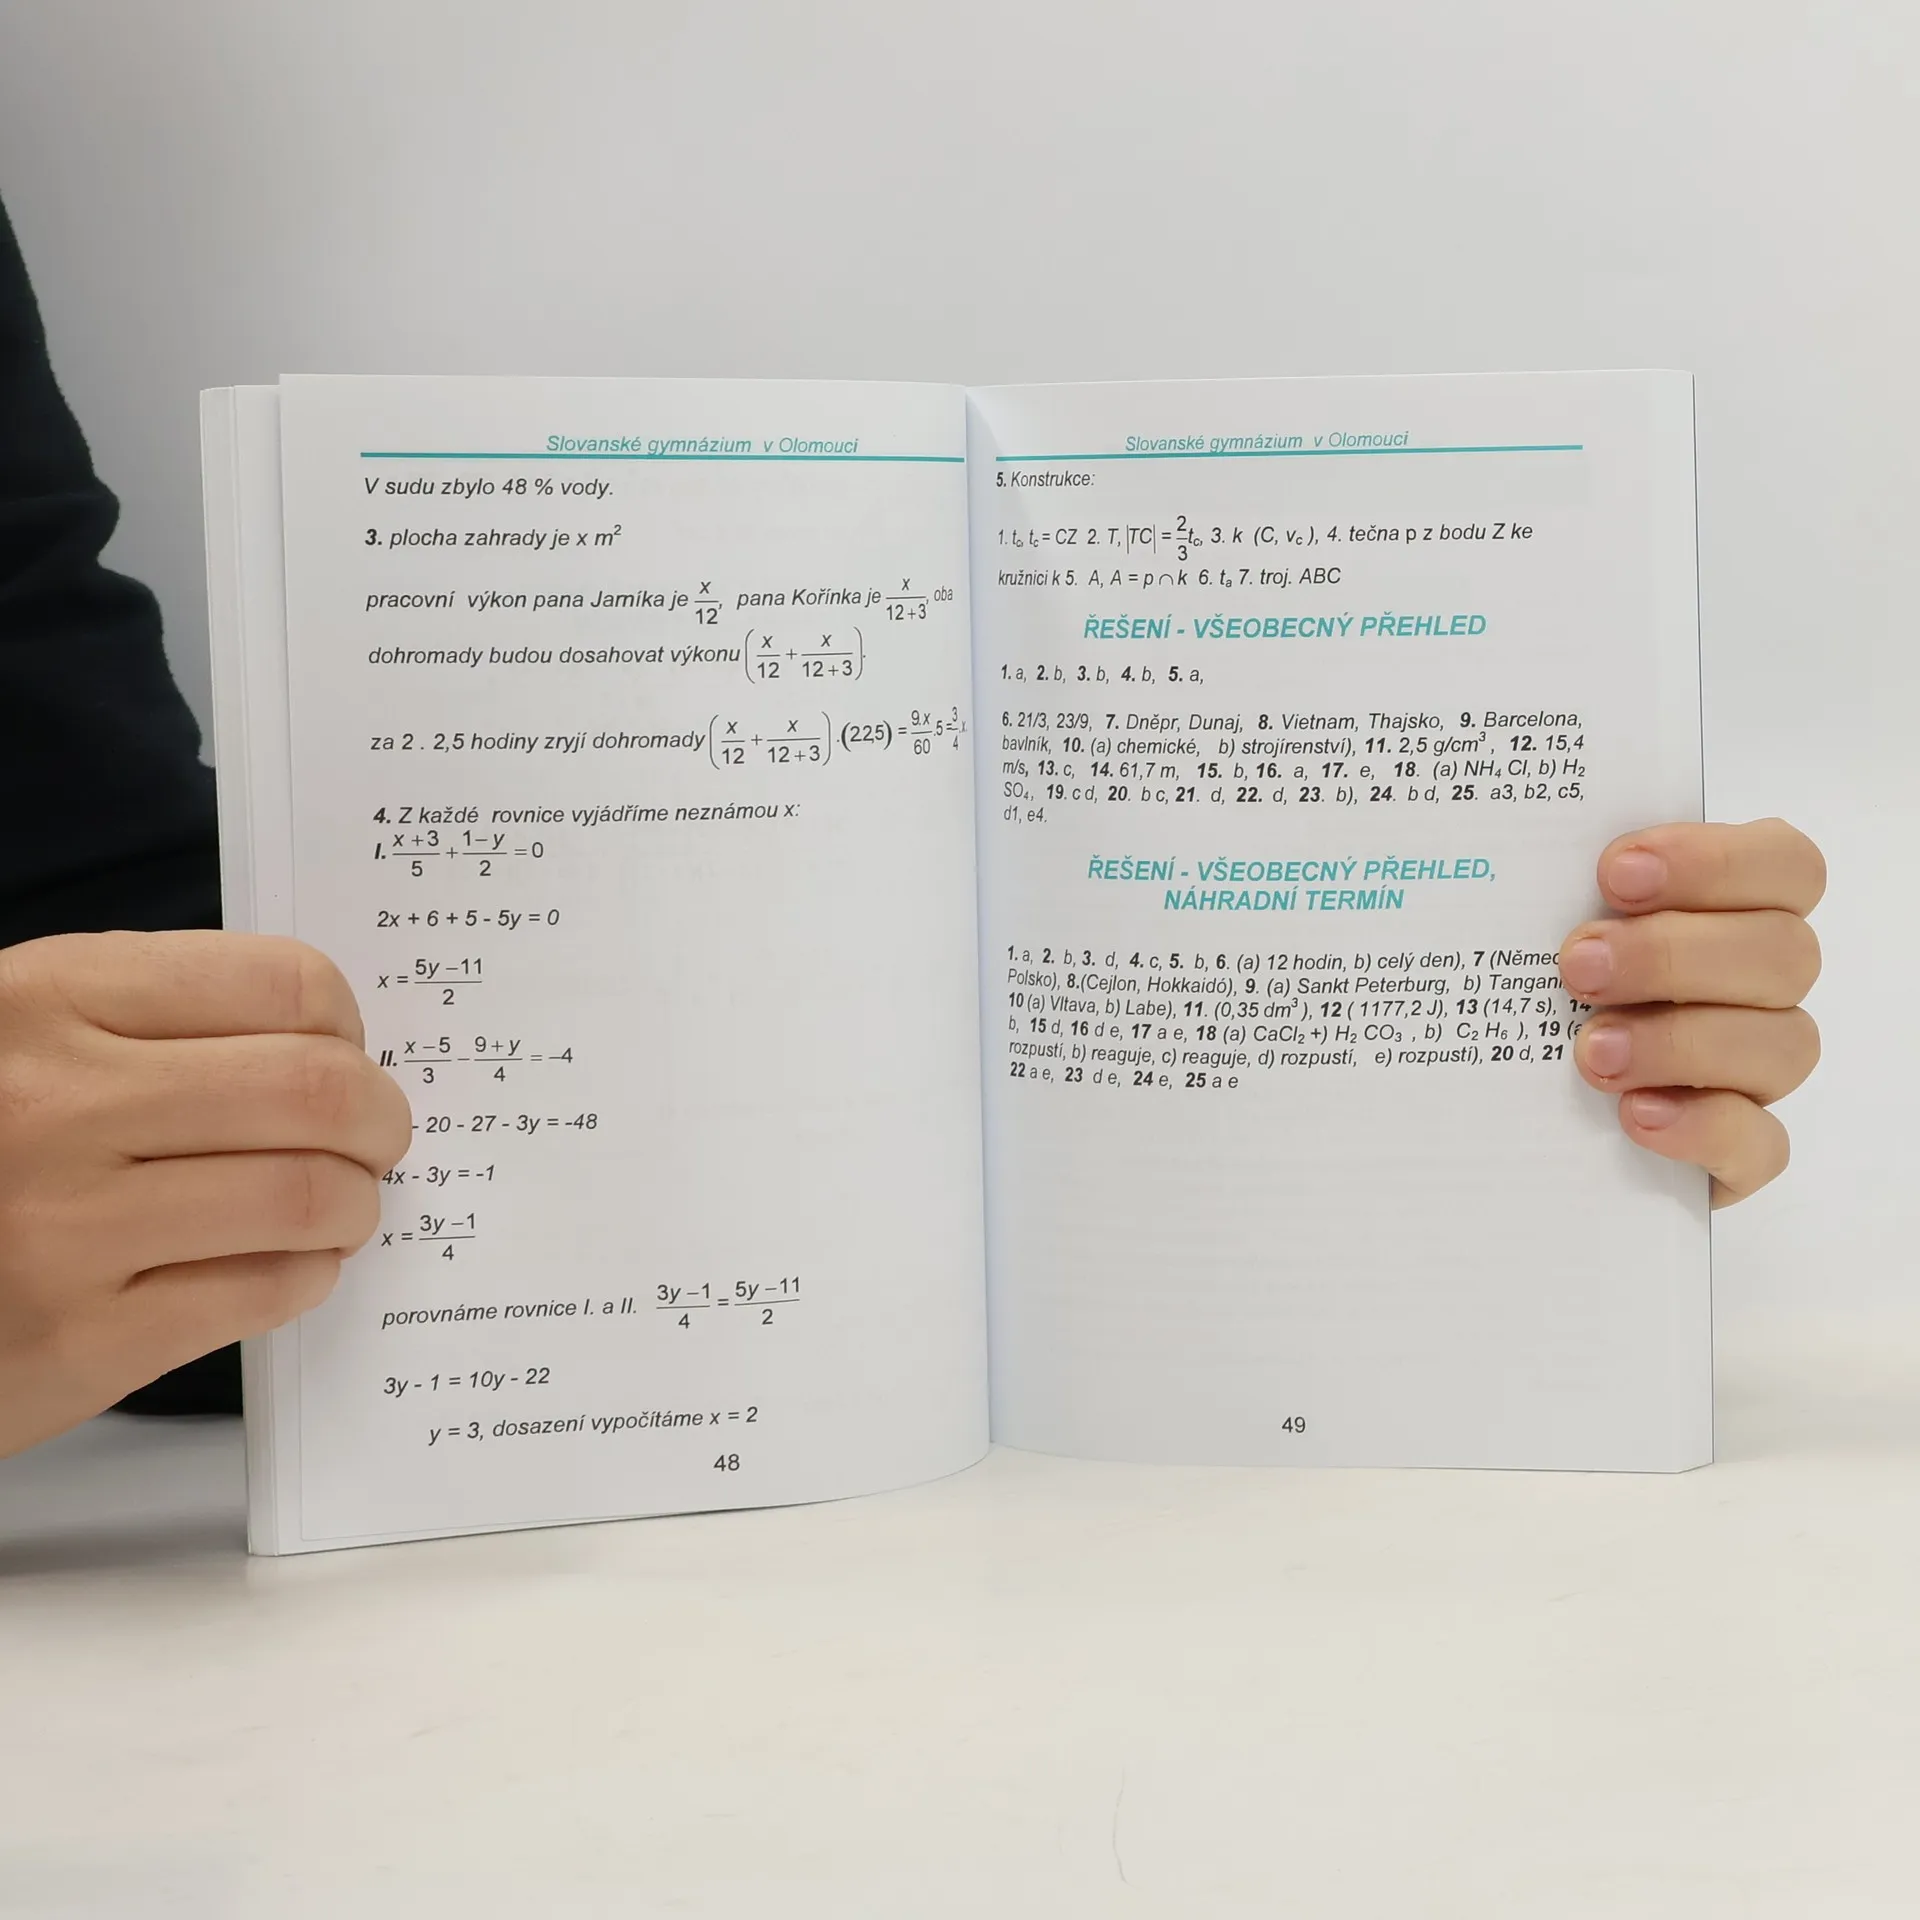 Slovanské gymnázium v Olomouci
V sudu zbylo 48 % vody.
3. plocha zahrady je x m²
pracovní výkon pana Jarníka je x/12, pana Kořínka je x/(12+3), oba
dohromady budou dosahovat výkonu (x/12 + x/(12+3)).
za 2 . 2,5 hodiny zryjí dohromady (x/12 + x/(12+3)) .(2.2,5) = 9.x/60 .5 = 3/4 x
4. Z každé rovnice vyjádříme neznámou x:
I. (x+3)/5 + (1–y)/2 = 0
2x + 6 + 5 - 5y = 0
x = (5y –11)/2
II. (x –5)/3 – (9+y)/4 = –4
- 20 - 27 - 3y = -48
4x - 3y = -1
x = (3y –1)/4
porovnáme rovnice I. a II. (3y –1)/4 = (5y –11)/2
3y - 1 = 10y - 22
y = 3, dosazení vypočítáme x = 2
48
Slovanské gymnázium v Olomouci
5. Konstrukce:
1. tc, tc = CZ 2. T, |TC| = 2/3 tc, 3. k (C, vc ), 4. tečna p z bodu Z ke
kružnici k 5. A, A = p ∩ k 6. ta 7. troj. ABC
ŘEŠENÍ - VŠEOBECNÝ PŘEHLED
1. a, 2. b, 3. b, 4. b, 5. a,
6. 21/3, 23/9, 7. Dněpr, Dunaj, 8. Vietnam, Thajsko, 9. Barcelona,
bavlník, 10. (a) chemické, b) strojírenství), 11. 2,5 g/cm³ , 12. 15,4
m/s, 13. c, 14. 61,7 m, 15. b, 16. a, 17. e, 18. (a) NH₄ Cl, b) H₂
SO₄, 19. c d, 20. b c, 21. d, 22. d, 23. b), 24. b d, 25. a3, b2, c5,
d1, e4.
ŘEŠENÍ - VŠEOBECNÝ PŘEHLED,
NÁHRADNÍ TERMÍN
1. a, 2. b, 3. d, 4. c, 5. b, 6. (a) 12 hodin, b) celý den), 7
Polsko), 8.(Cejlon, Hokkaidó), 9. (a) Sankt Peterburg, b)
10 (a) Vltava, b) Labe), 11. (0,35 dm³ ), 12 ( 1177,2 J), 13 (14,7 s), 14
b, 15 d, 16 d e, 17 a e, 18 (a) CaCl₂ +) H₂ CO₃ , b) C₂ H₆ ), 19 (a
rozpustí, b) reaguje, c) reaguje, d) rozpustí, e) rozpustí), 20 d, 21
22 a e, 23 d e, 24 e, 25 a e
49